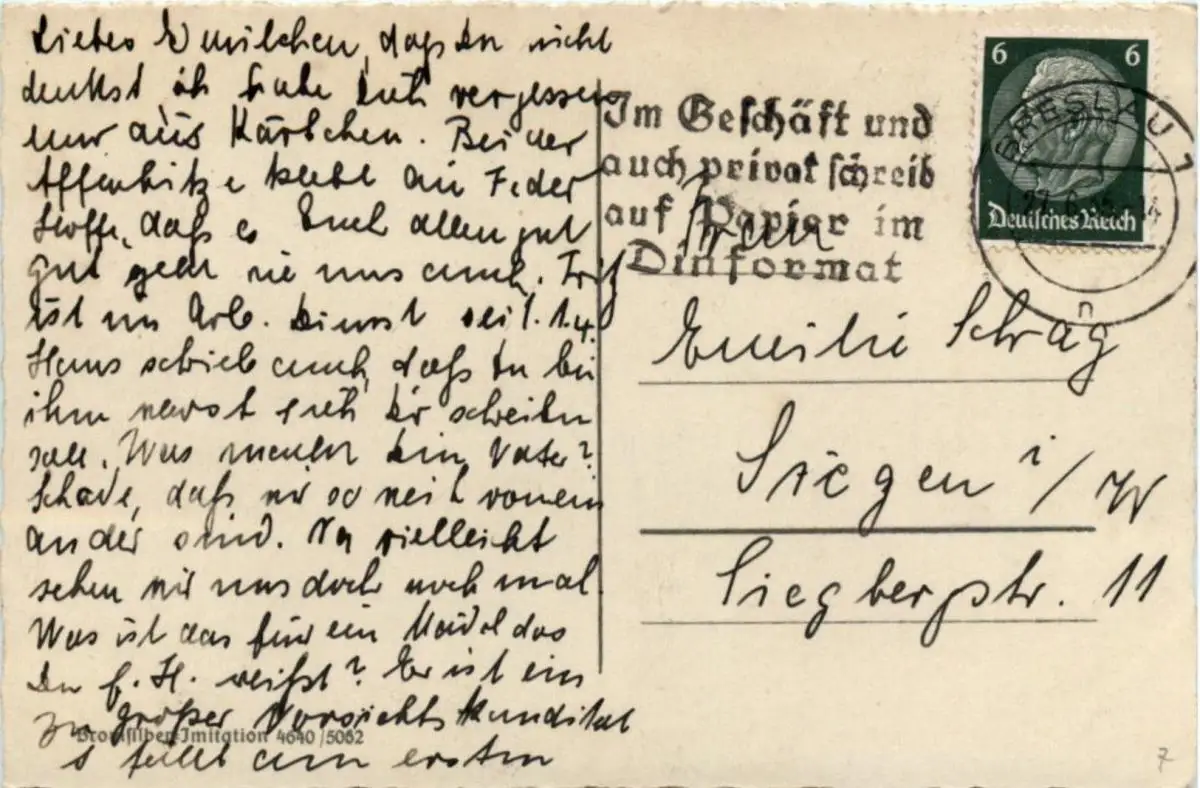 Liebes Emilchen, daß Du nicht
denkst ich habe Dich vergessen
nur aus Kärtchen. Bei der
Affenhitze klebt die Feder
Hoffe, daß es Euch allen gut
gut geht wie uns auch.
ist im Arb. Dienst seit 1.4.
Hans schrieb auch, daß Du bei
ihm warst ich Dir schreiben
soll. Was macht Dein Vater?
Schade, daß wir so weit vonein
ander sind. Na vielleicht
sehen wir uns doch noch mal
Was ist das für ein Mädel das
Du f. H. weißt? Er ist ein
zu großer Vorsichts Kandidat
s fällt am ersten
Bromsilber-Imitation 4640/5062
Im Geschäft und
auch privat schreib
auf Papier im
Dinformat
6 6
Deutsches Reich
BRESLAU 1
n
Frau
Emilie Schrag
Siegen i/W
Siegbergstr. 11
7